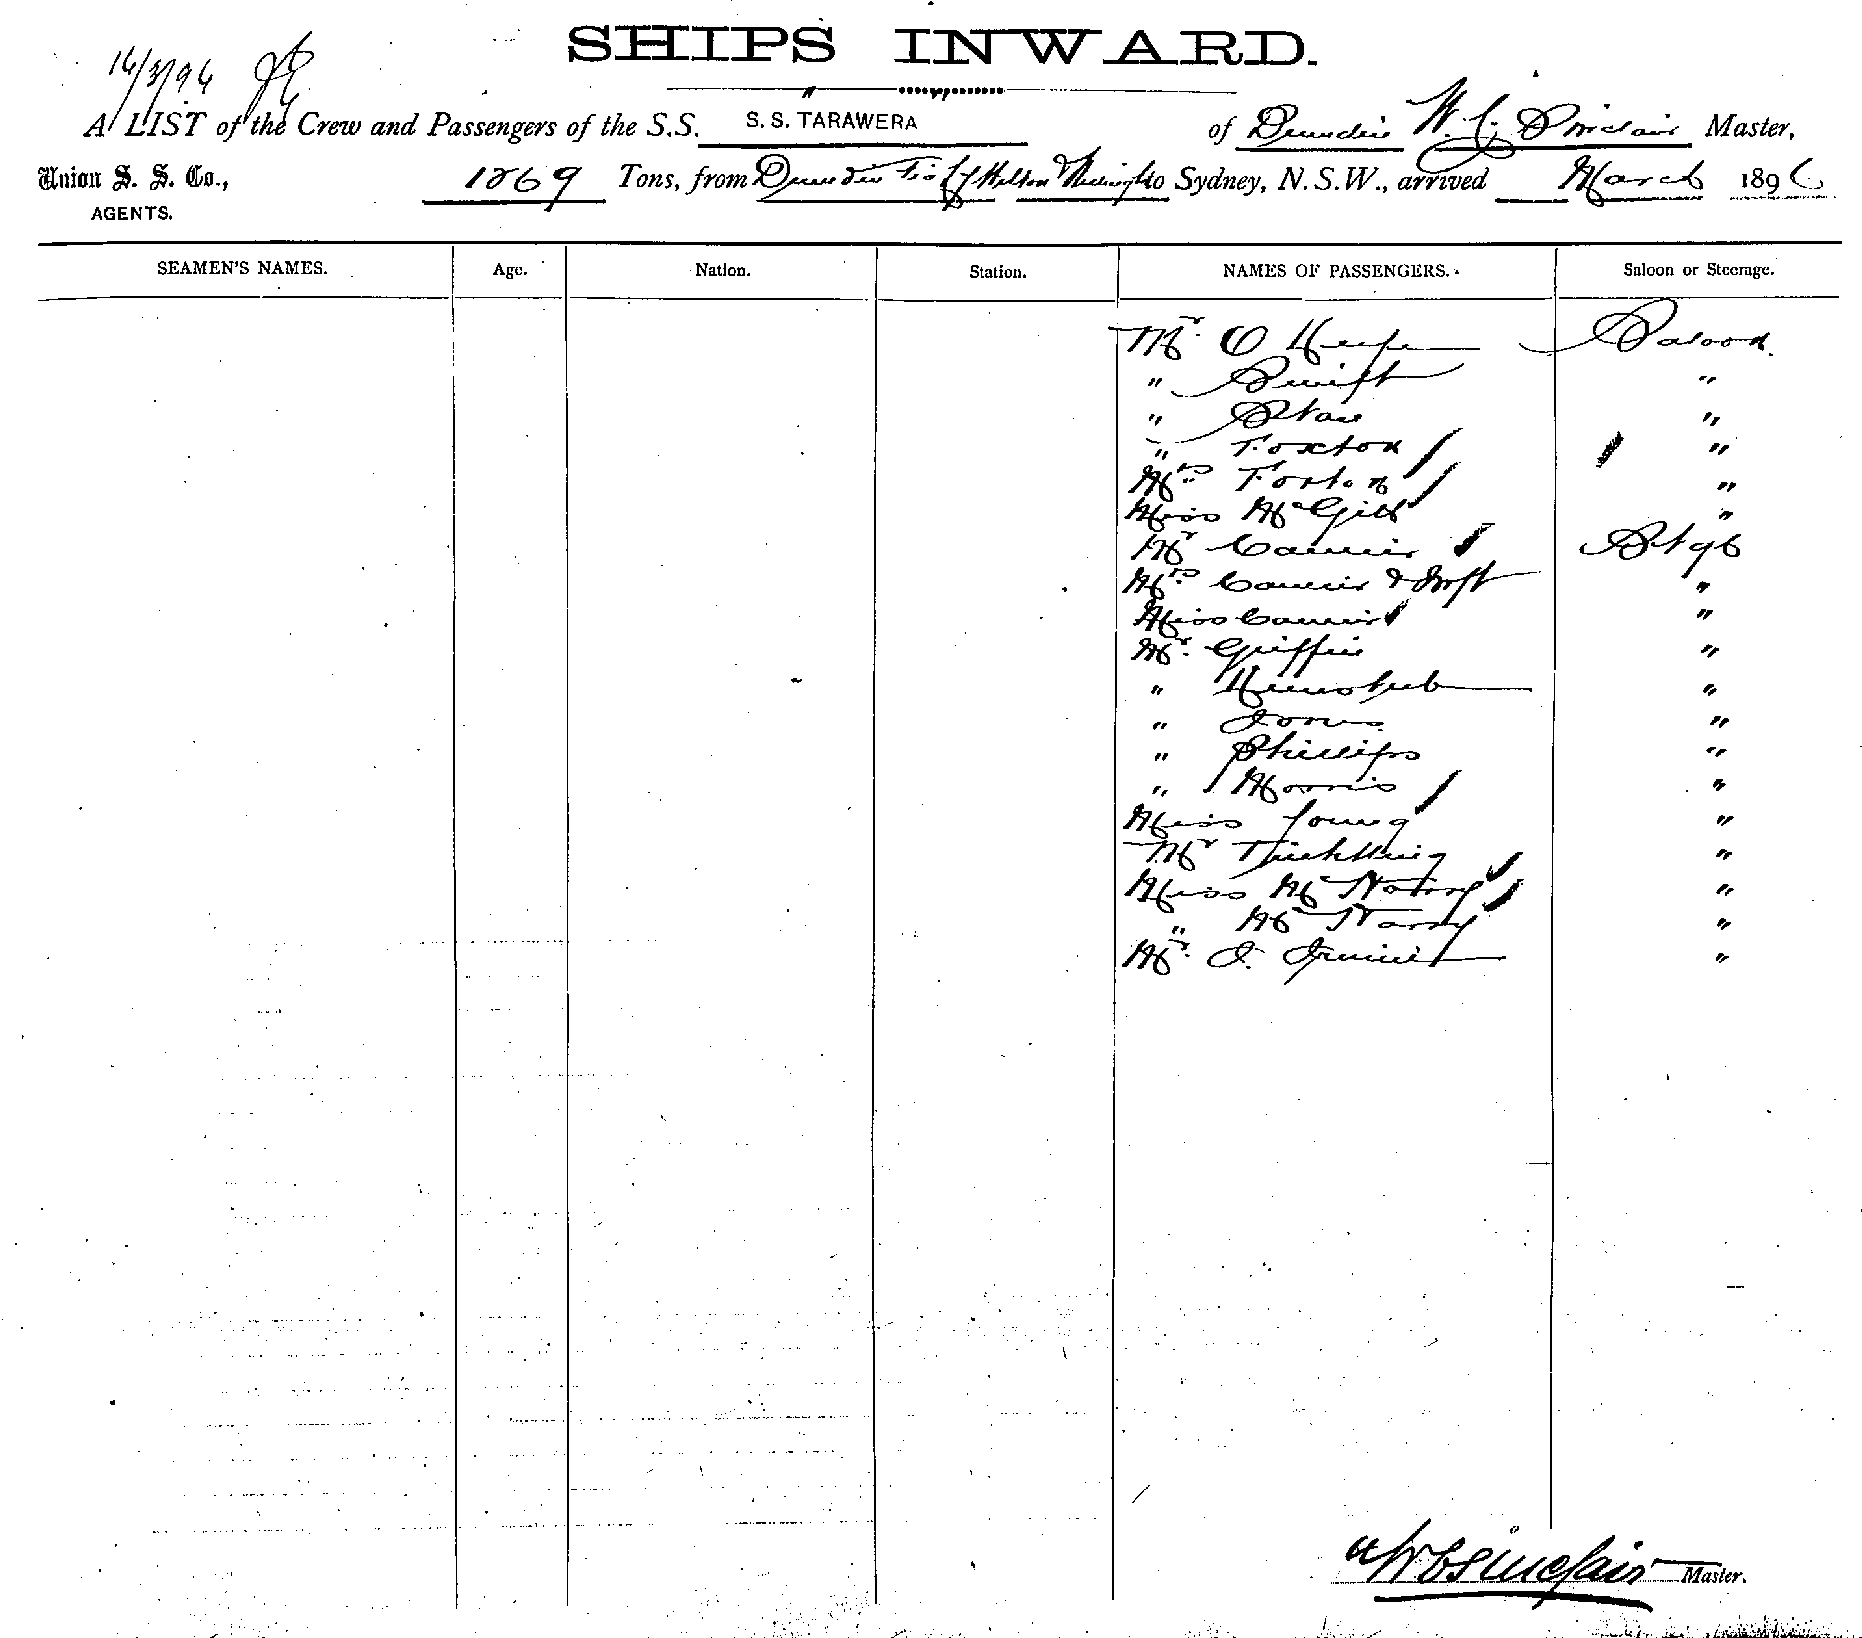 SHIPS INWARD.
16/3/96
A LIST of the Crew and Passengers of the S.S. S. S. TARAWERA of Dunedin W. C. Sinclair Master,
Union S. S. Co., 1869 Tons, from Dunedin via Lyttelton & Wellington to Sydney, N.S.W., arrived March 1896
AGENTS.
SEAMEN'S NAMES. Age. Nation. Station. NAMES OF PASSENGERS. Saloon or Steerage.
Mr. O Keefe Saloon.
" Swift "
" "
" Foxton "
Mrs Foxton "
Miss McGill "
Mr Stge
Mrs & Inft "
Miss "
Mr. Griffin "
" "
" Jones "
" Phillips "
" Morris "
Miss Young "
Mr "
Miss Mc "
" Mc "
Mr. J. "
W C Sinclair Master.